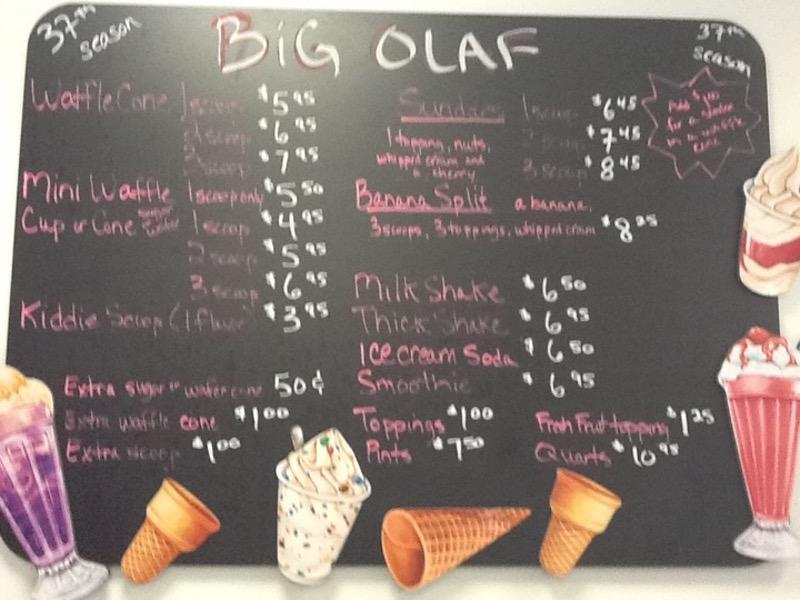 37th season
BiG OLAF
37th season
Waffle Cone 1 scoop $5.95
2 scoop $6.95
3 scoop $7.95
Mini Waffle 1 scoop only $5.50
Cup or Cone sugar wafer 1 scoop $4.95
2 scoop $5.95
3 scoop $6.95
Kiddie Scoop (1 flavor) $3.95
Extra sugar or wafer cone 50¢
Extra waffle cone $1.00
Extra scoop $1.00
Sundaes 1 scoop $6.45
2 scoop $7.45
3 scoop $8.45
1 topping, nuts,
whipped cream and
a cherry
Add $1.00
for a sundae
in a waffle
cone
Banana Split a banana,
3 scoops, 3 toppings, whipped cream $8.25
Milk Shake $6.50
Thick Shake $6.95
Ice cream Soda $6.50
Smoothie $6.95
Toppings $1.00 Fresh Fruit topping $1.25
Pints $7.50 Quarts $10.95